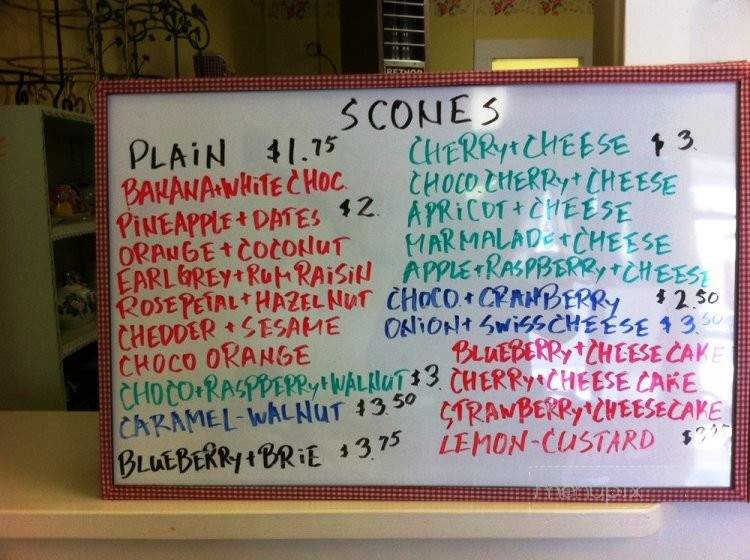 REZNOR
SCONES
PLAIN $1.75
BANANA+WHITE CHOC.
PINEAPPLE + DATES $2.
ORANGE + COCONUT
EARL GREY + RUM RAISIN
ROSEPETAL + HAZELNUT
CHEDDER + SESAME
CHOCO ORANGE
CHOCO+RASPBERRY+WALNUT $3.
CARAMEL-WALNUT $3.50
BLUEBERRY+BRIE $3.75
CHERRY+CHEESE $3.
CHOCO.CHERRY+CHEESE
APRICOT+CHEESE
MARMALADE+CHEESE
APPLE+RASPBERRY+CHEESE
CHOCO.+CRANBERRY $2.50
ONION+ SWISS CHEESE $3.50
BLUEBERRY+CHEESE CAKE
CHERRY+CHEESE CAKE
STRAWBERRY+CHEESECAKE
LEMON-CUSTARD
menupix